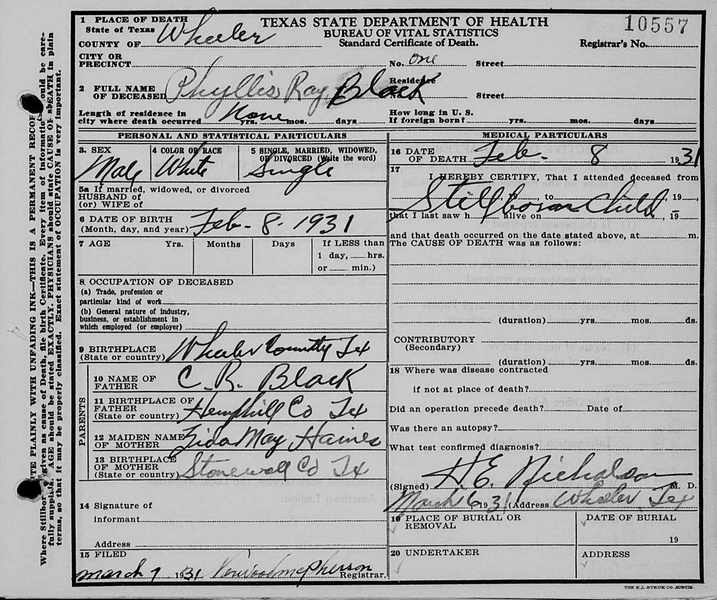 TEXAS STATE DEPARTMENT OF HEALTH
BUREAU OF VITAL STATISTICS
Standard Certificate of Death.
10557
Registrar's No.
1 PLACE OF DEATH
State of Texas
COUNTY OF Wheeler
CITY OR
PRECINCT No. one Street
2 FULL NAME OF DECEASED Phyllis Ray Black
Residence
Street
Length of residence in
city where death occurred None yrs. mos. days
How long in U. S.
If foreign born? yrs. mos. days
PERSONAL AND STATISTICAL PARTICULARS
3. SEX
Male
4 COLOR OF RACE
White
5 SINGLE, MARRIED, WIDOWED,
OF DIVORCED (Write the word)
Single
5a If married, widowed, or divorced
HUSBAND of
(or) WIFE of
6 DATE OF BIRTH
(Month, day, and year) Feb - 8 - 1931
7 AGE Yrs. Months Days If LESS than
1 day, hrs.
or min.)
8 OCCUPATION OF DECEASED
(a) Trade, profession or
particular kind of work
(b) General nature of industry,
business, or establishment in
which employed (or employer)
9 BIRTHPLACE
(State or country) Wheeler County Tex
PARENTS
10 NAME OF
FATHER C. R. Black
11 BIRTHPLACE OF
FATHER
(State or country) Hemphill Co Tex
12 MAIDEN NAME
OF MOTHER May Haines
13 BIRTHPLACE
OF MOTHER
(State or country) Stonewall Co Tex
14 Signature of
informant
Address
15 FILED
March 7 1931 McPherson
Registrar.
MEDICAL PARTICULARS
16 DATE
OF DEATH Feb - 8 1931
17 I HEREBY CERTIFY, That I attended deceased from
, to , 19
Stillborn Child
that I last saw h alive on , 19
and that death occurred on the date stated above, at m.
The CAUSE OF DEATH was as follows:
(duration) yrs. mos. ds.
CONTRIBUTORY
(Secondary)
(duration) yrs. mos. ds.
18 Where was disease contracted
if not at place of death?
Did an operation precede death? Date of
Was there an autopsy?
What test confirmed diagnosis?
(Signed) H. E. Nicholson M. D.
March 6 1931 Address Wheeler, Tex
19 PLACE OF BURIAL OR
REMOVAL
DATE OF BURIAL
19
20 UNDERTAKER
ADDRESS